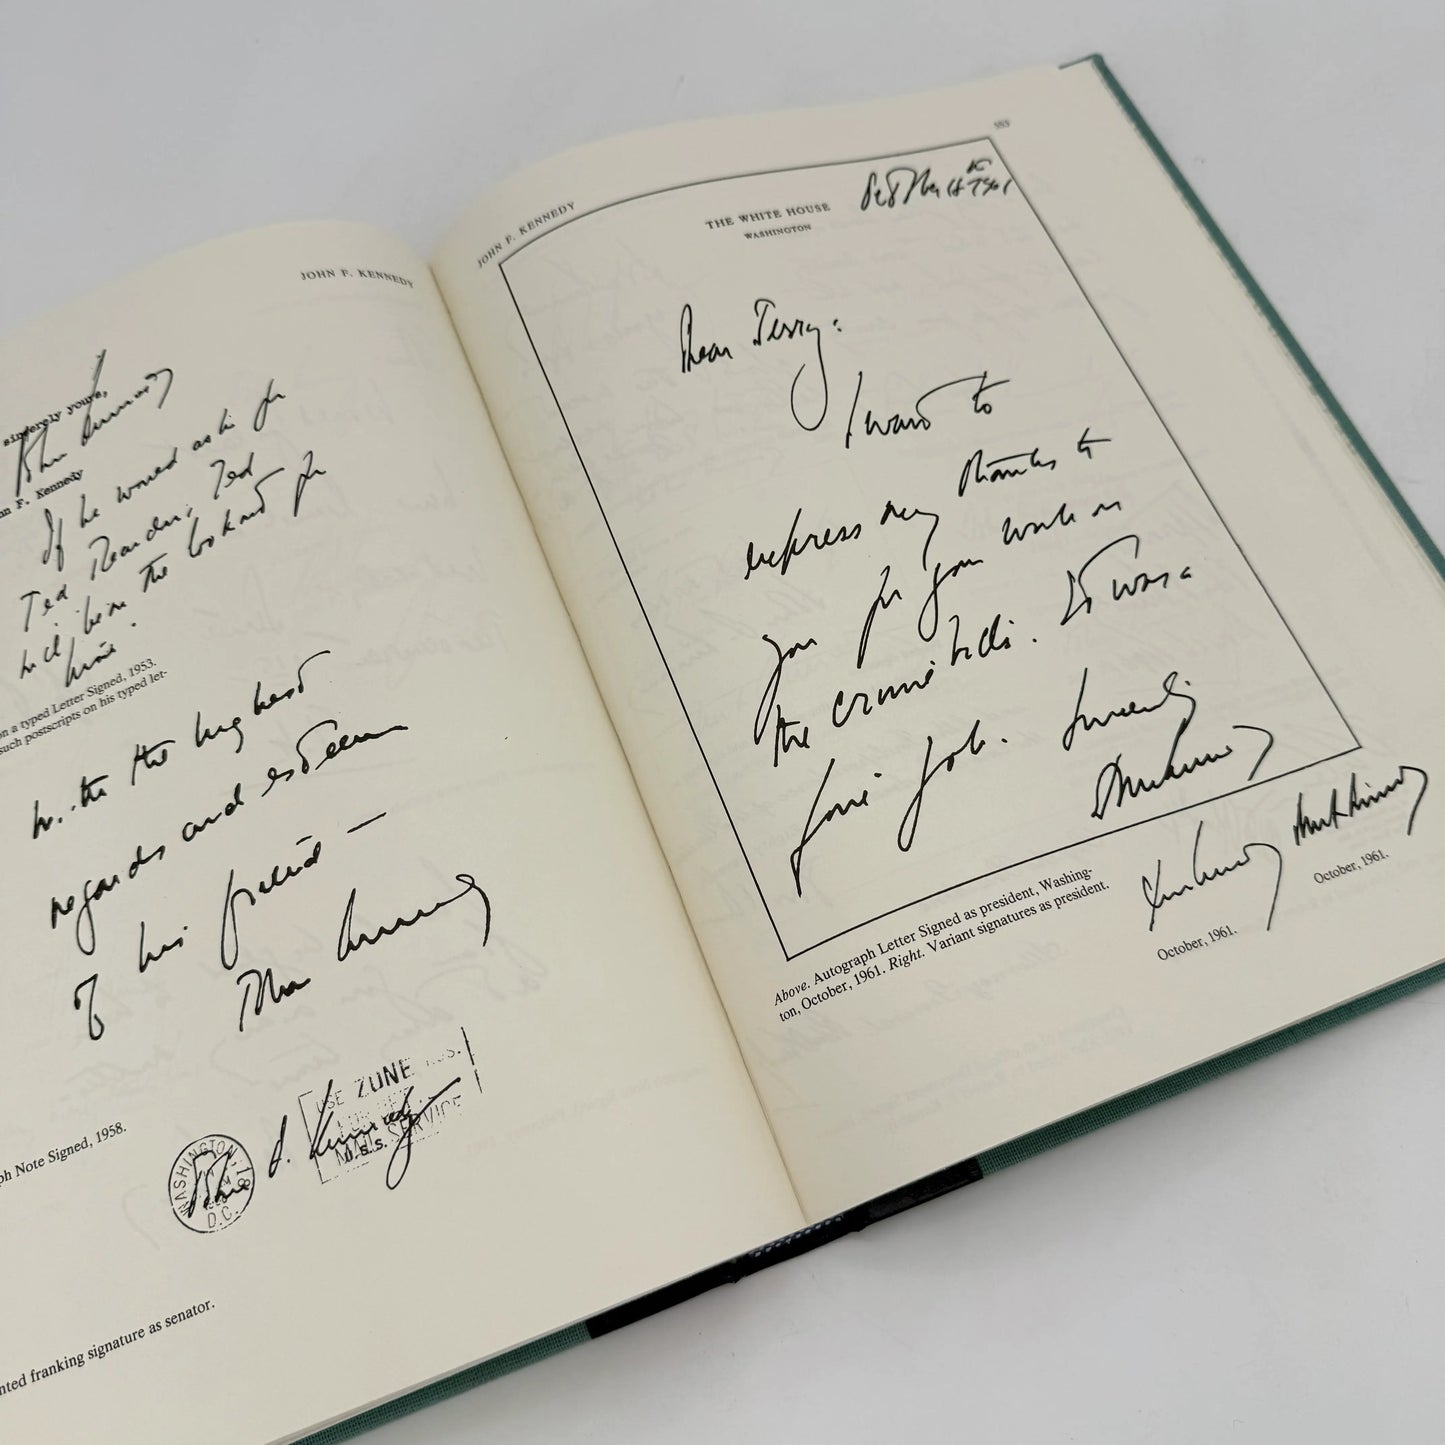 JOHN F. KENNEDY
sincerely yours,
John Kennedy
n F. Kennedy
If he would ask for
Ted Reardon, Ted
will be on the lookout for
him.
on a typed Letter Signed, 1953.
such postscripts on his typed let-
with the highest
regards and esteem
of his friend —
John Kennedy
ph Note Signed, 1958.
WASHINGTON
D.C.
John F. Kennedy
USE ZONE NOS.
MAIL SERVICE
U.S.S.
nted franking signature as senator.
JOHN F. KENNEDY
555
THE WHITE HOUSE
WASHINGTON
1961
Dear Jerry:
I want to
express my thanks to
you for your work on
the crime bills. It was a
fine job. Sincerely
John Kennedy
Above. Autograph Letter Signed as president, Washing-
ton, October, 1961. Right. Variant signatures as president.
October, 1961.
October, 1961.